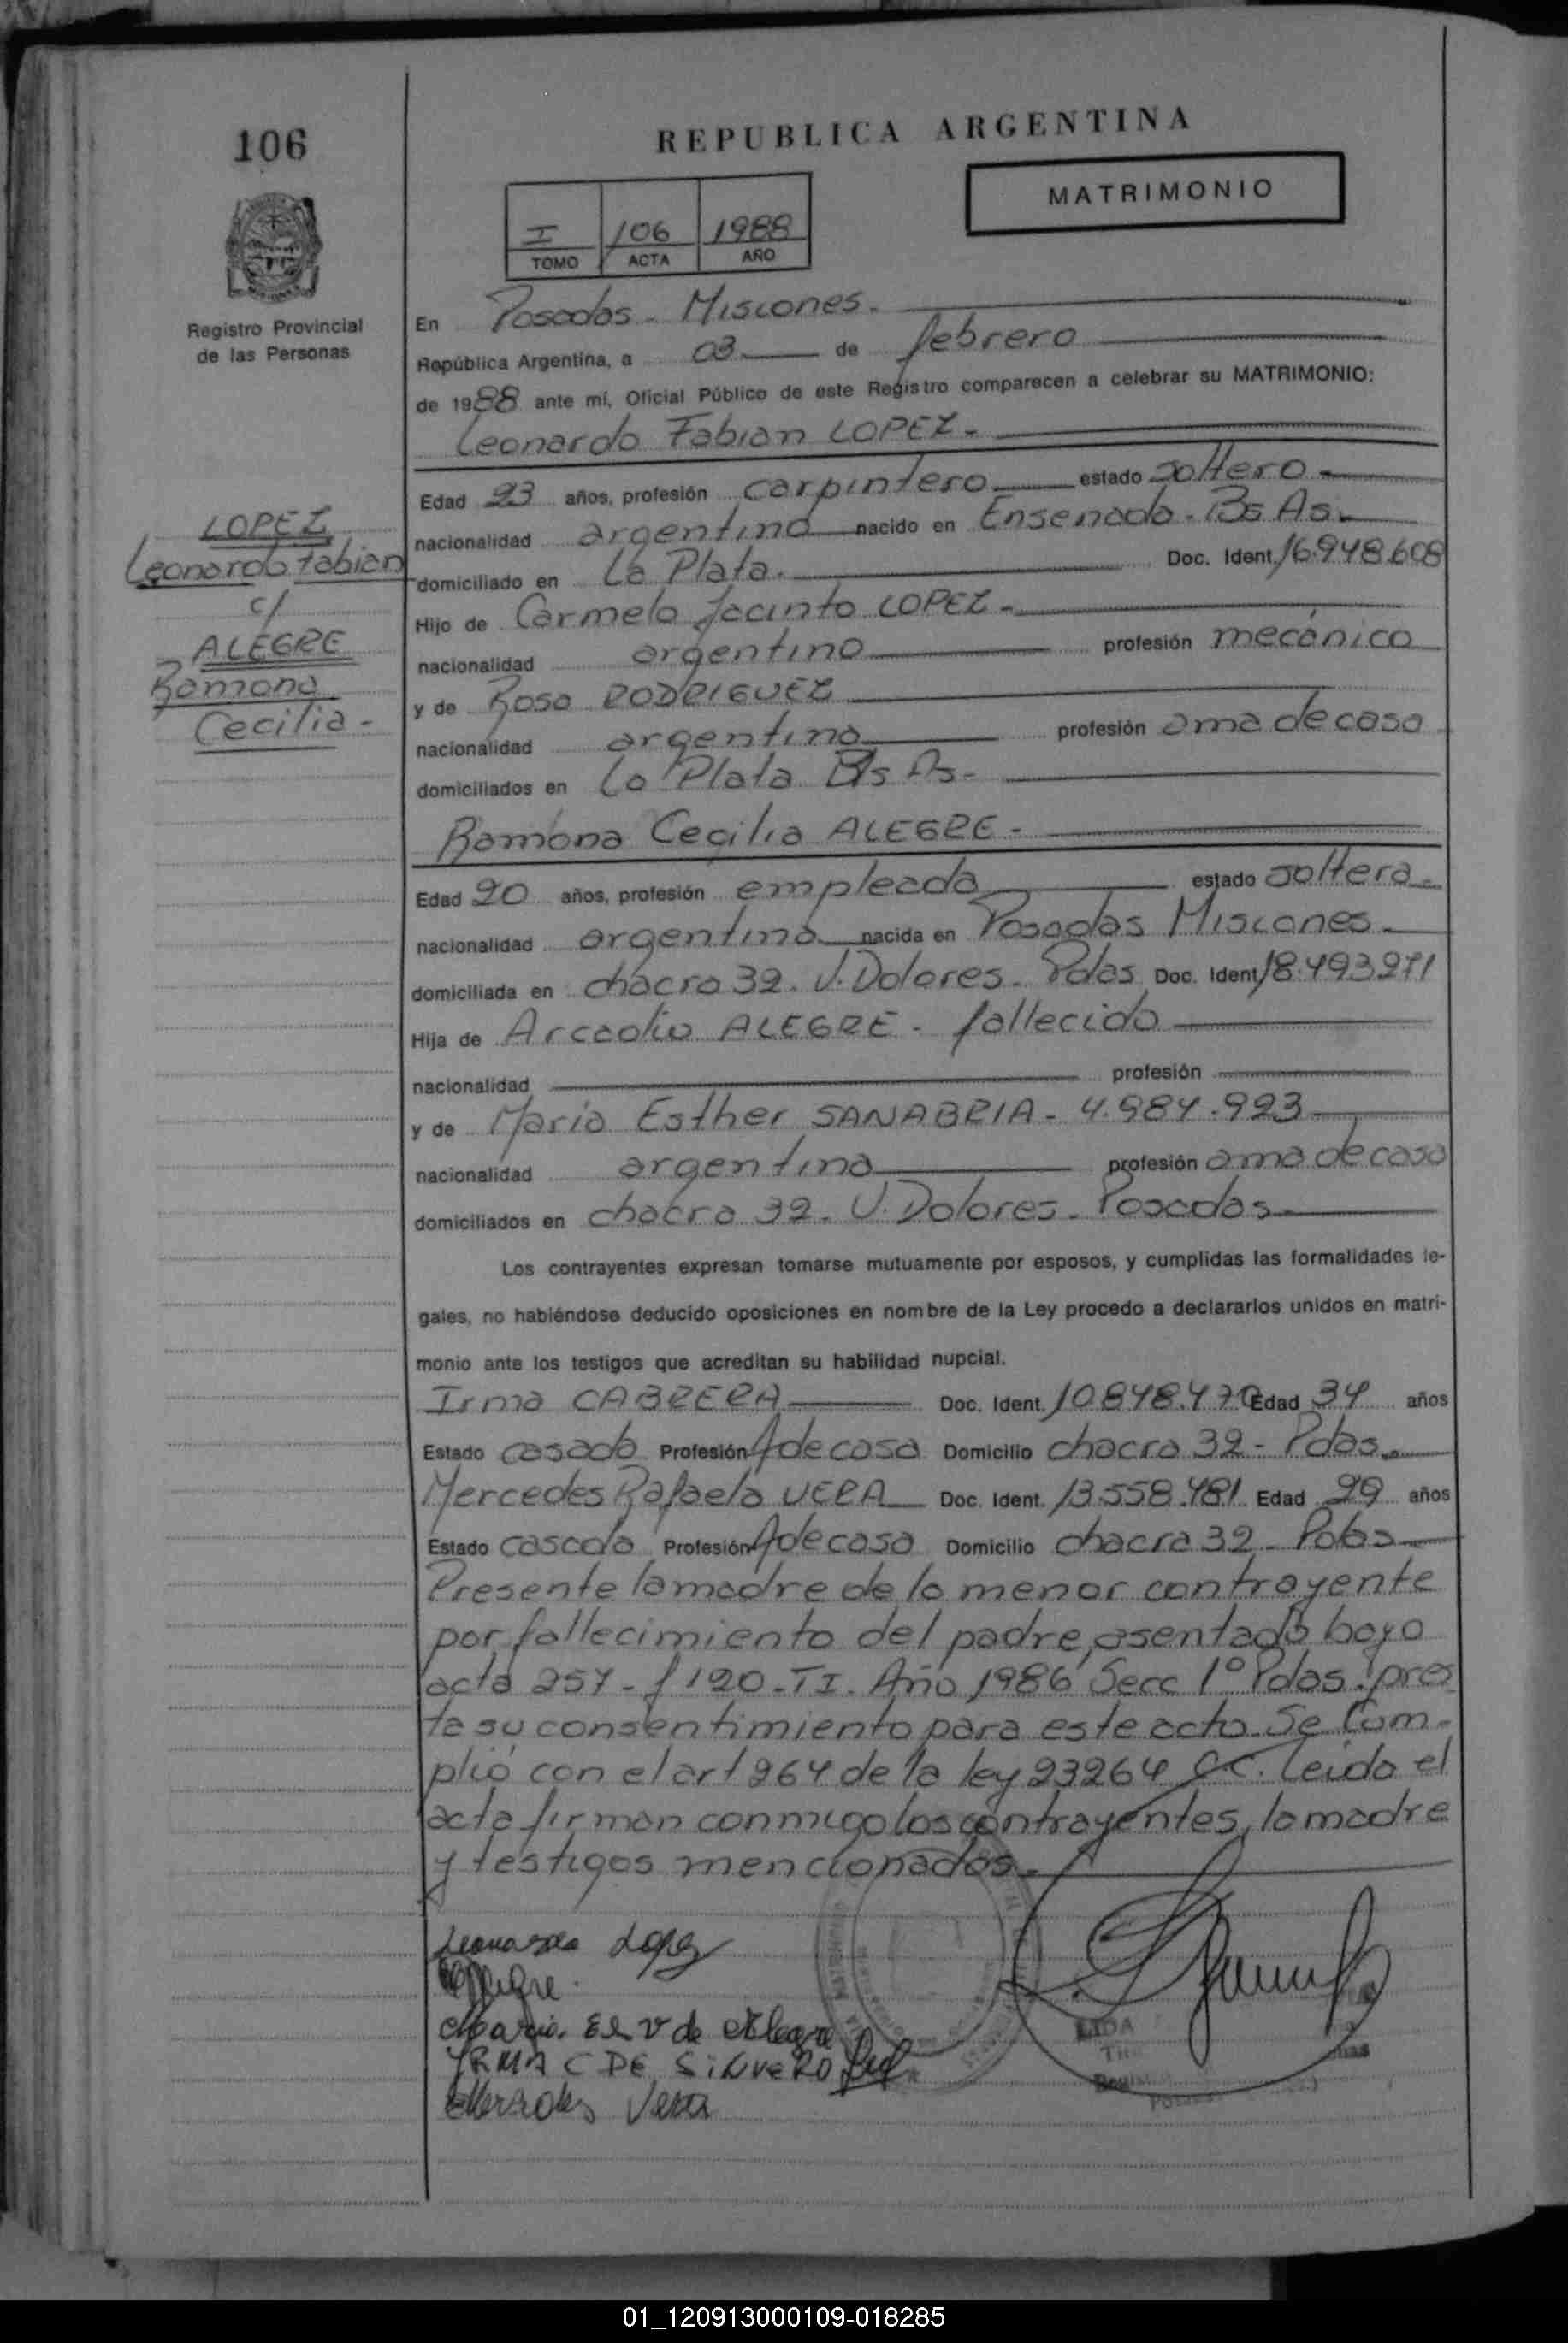 106
REPUBLICA ARGENTINA
MATRIMONIO
I 106 1988
TOMO ACTA AÑO
Registro Provincial
de las Personas
En Posadas - Misiones.
República Argentina, a 03 de febrero
de 1988 ante mí, Oficial Público de este Registro comparecen a celebrar su MATRIMONIO:
Leonardo Fabian LOPEZ.
Edad 23 años, profesión carpintero estado soltero
nacionalidad argentina nacido en Ensenada - Bs As.
domiciliado en La Plata. Doc. Ident. 16.948.608
Hijo de Carmelo Jacinto LOPEZ.
nacionalidad argentino profesión mecánico
y de Rosa RODRIGUEZ
nacionalidad argentina profesión ama de casa
domiciliados en La Plata Bs As.
LOPEZ
Leonardo Fabian
c/
ALEGRE
Ramona
Cecilia -
Ramona Cecilia ALEGRE -
Edad 20 años, profesión empleada estado soltera
nacionalidad argentina nacida en Posadas Misiones
domiciliada en chacra 32. V. Dolores. Pdas Doc. Ident 18.493.271
Hija de Arcadio ALEGRE - fallecido
nacionalidad profesión
y de Maria Esther SANABRIA - 4.984.923
nacionalidad argentina profesión ama de casa
domiciliados en chacra 32. V. Dolores - Posadas
Los contrayentes expresan tomarse mutuamente por esposos, y cumplidas las formalidades le-
gales, no habiéndose deducido oposiciones en nombre de la Ley procedo a declararlos unidos en matri-
monio ante los testigos que acreditan su habilidad nupcial.
Irma CABRERA Doc. Ident. 10.848.470 Edad 34 años
Estado casada Profesión A de casa Domicilio chacra 32 - Pdas.
Mercedes Rafaela VERA Doc. Ident. 13.558.481 Edad 29 años
Estado casada Profesión A de casa Domicilio chacra 32 - Pdas
Presente la madre de la menor contrayente
por fallecimiento del padre, asentado bajo
acta 257 - f 120 - TI. Año 1986 Secc 1º Pdas. pres
ta su consentimiento para este acto. Se Cum-
plió con el art 264 de la ley 23264 CC. Leido el
acta firman conmigo los contrayentes, la madre
y testigos mencionados.
Leonardo Lopez
Alegre.
Maria. E S. v de Alegre
IRMA C DE SILVERO
Mercedes Vera
LIDA
01_120913000109-018285